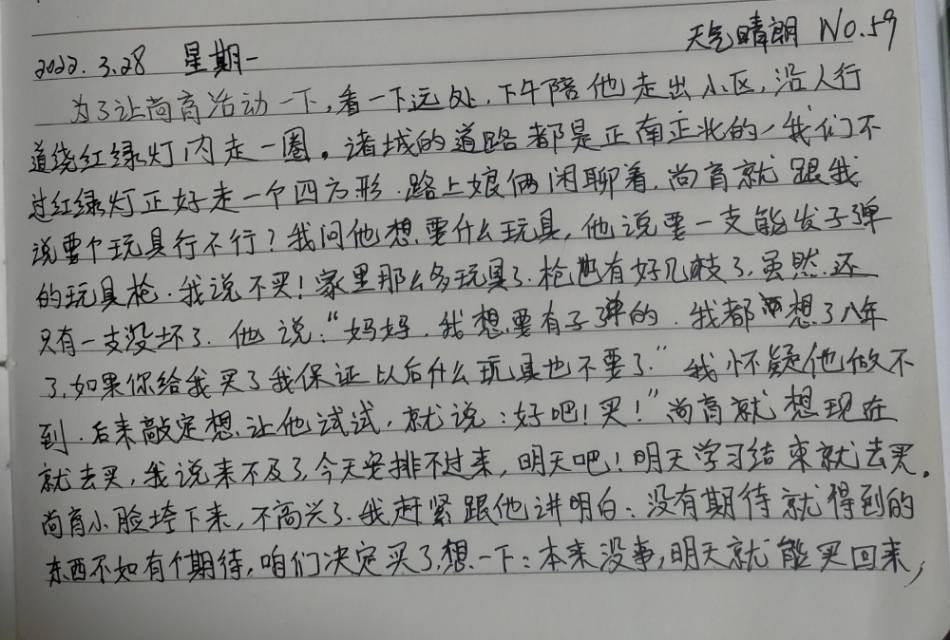 天气晴朗 NO.59
2022.3.28 星期一
为了让尚育活动一下,看一下远处,下午陪他走出小区,沿人行
道绕红绿灯内走一圈。诸城的道路都是正南正北的,我们不
过红绿灯正好走一个四方形.路上娘俩闲聊着,尚育就跟我
说要个玩具行不行?我问他想要什么玩具,他说要一支能发子弹
的玩具枪.我说不买!家里那么多玩具了.枪也有好几支了,虽然还
只有一支没坏了.他说:“妈妈,我想要有子弹的,我都想了八年
了,如果你给我买了我保证以后什么玩具也不要了”我怀疑他做不
到.后来敲定想让他试试,就说:好吧!买!”尚育就想现在
就去买,我说来不及了,今天安排不过来,明天吧!明天学习结束就去买。
尚育小脸垮下来,不高兴了.我赶紧跟他讲明白:没有期待就得到的
东西不如有个期待,咱们决定买了想一下:本来没事,明天就能买回来,